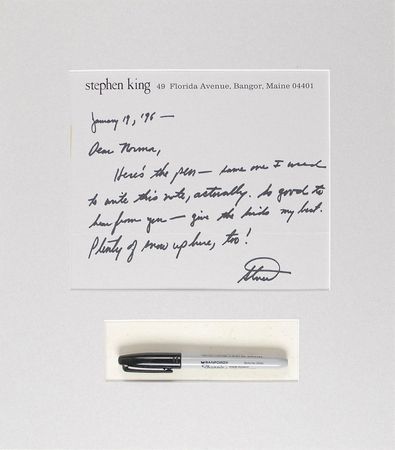 stephen king 49 Florida Avenue, Bangor, Maine 04401
January 19, '96 —
Dear Norma,
Here's the pen — same one I used
to write this note, actually. So good to
hear from you — give the kids my best.
Plenty of snow up here, too!
Steve
SANFORD
Sharpie